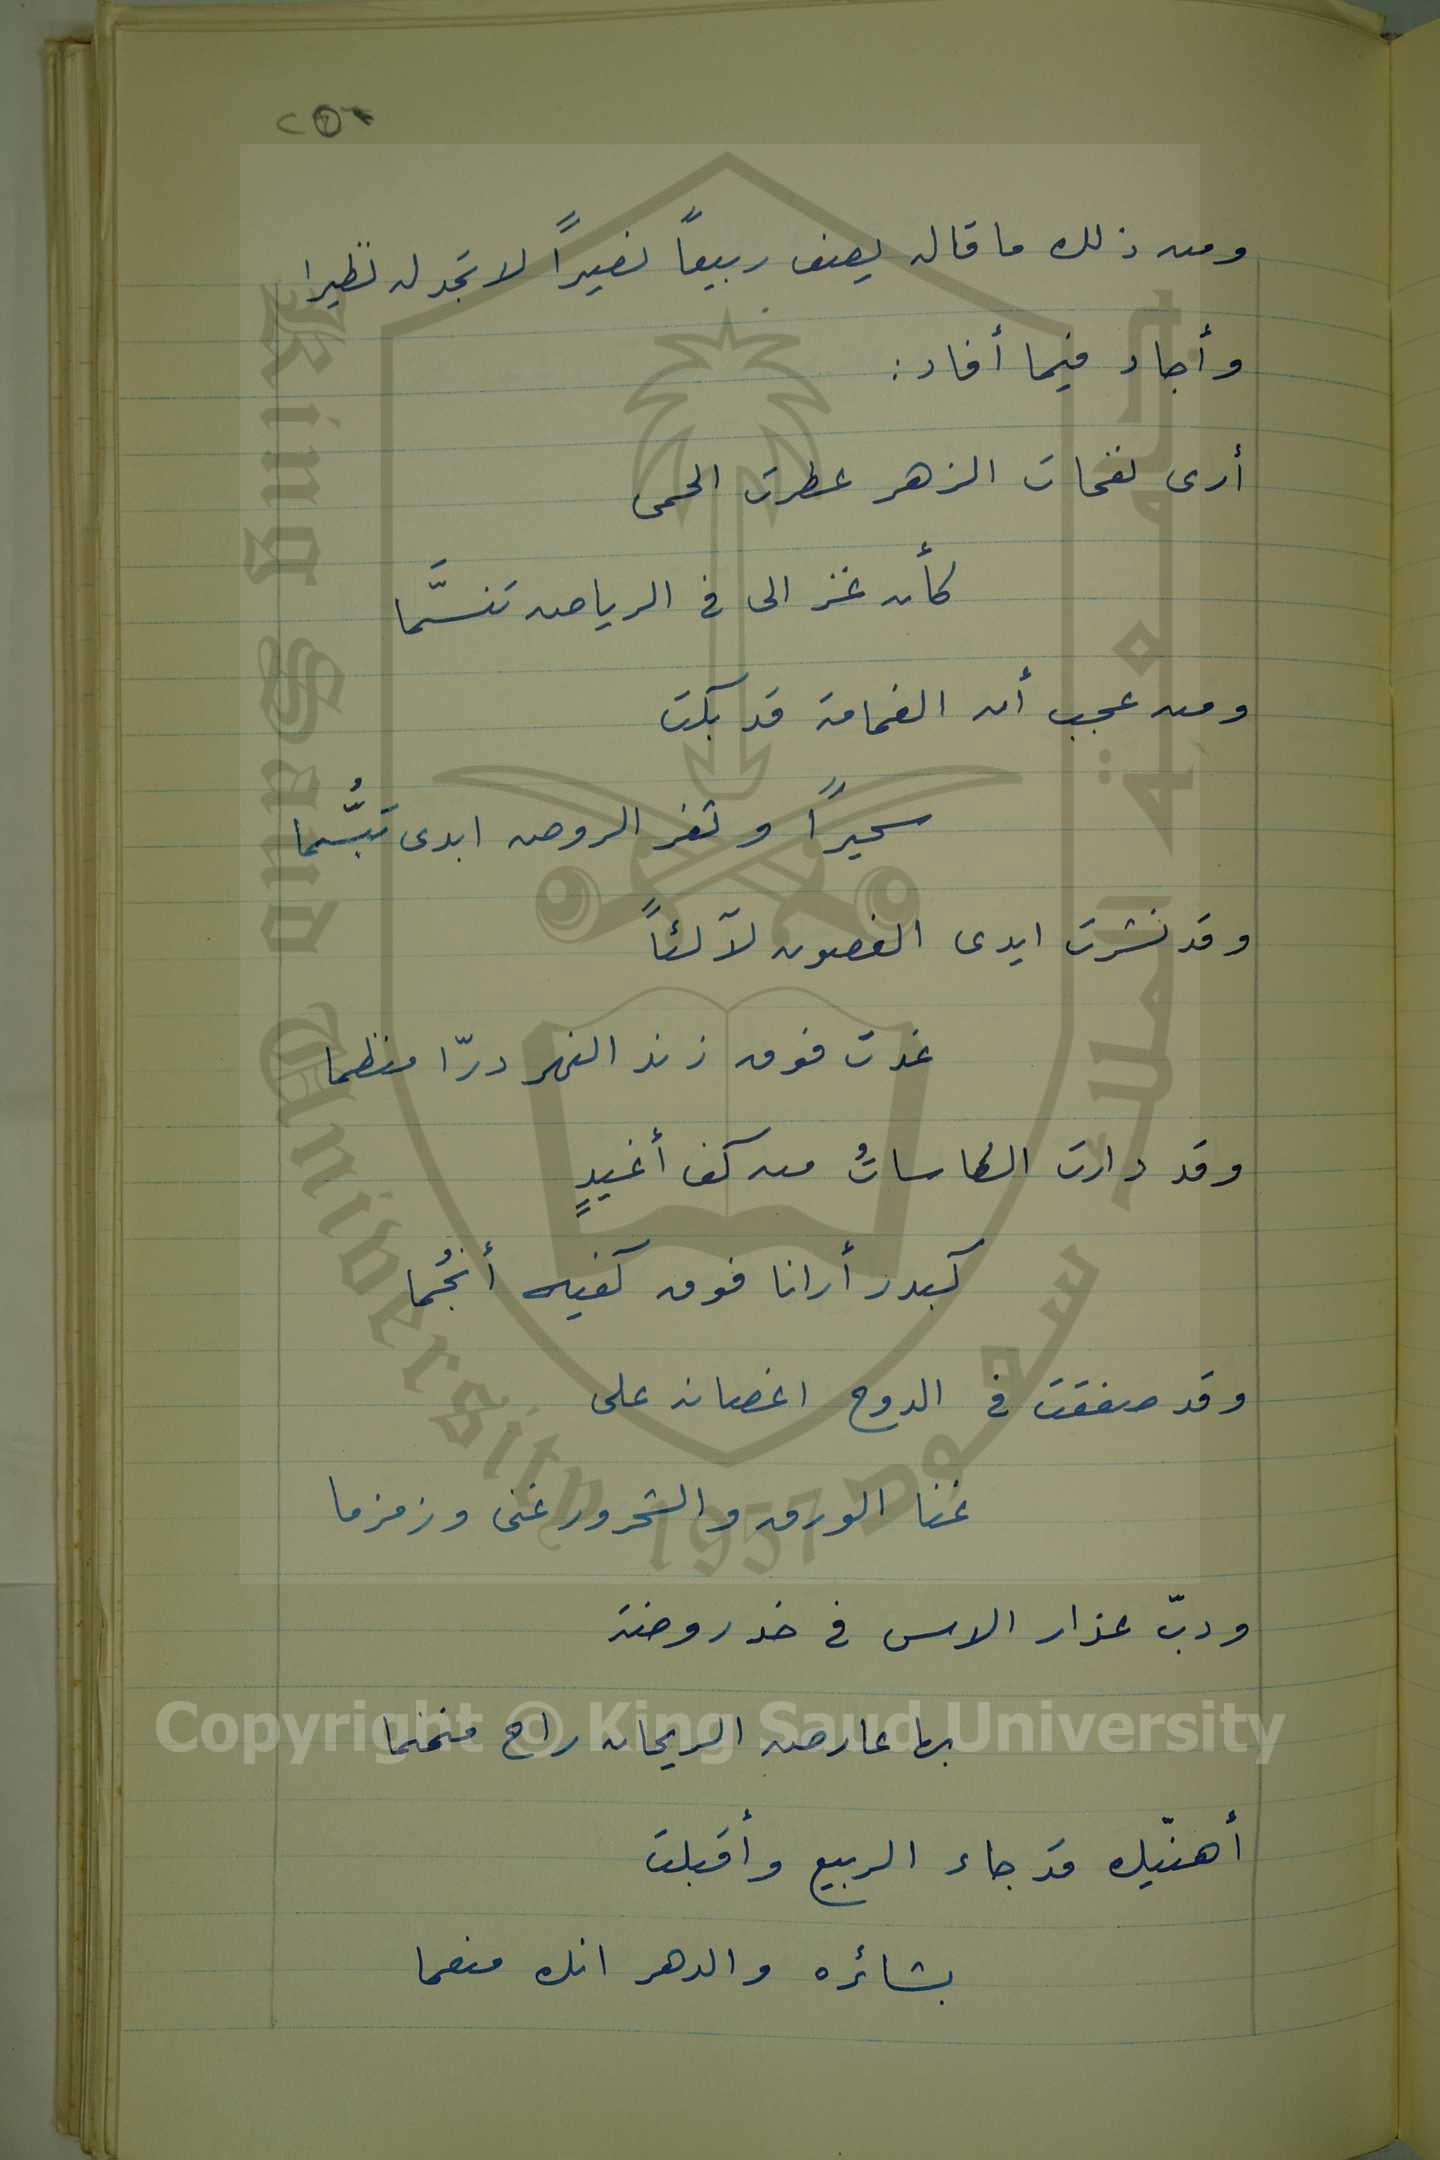 ومن ذلك ما قاله يصف ربيعاً نضيراً لا تجد له نظيرا
وأجاد فيما أفاد:
أرى نفحات الزهر عطرت الحمى
كأن غزالى في الرياض تنسَّما
ومن عجب أن الغمامة قد بكت
سحيراً وثغر الروض ابدى تَبسُّما
وقد نشرت ايدى الغصون لآلئاً
غدت فوق زند النهر درّا منظما
وقد دارت الكاساتُ من كف أغيدٍ
كبدر أرانا فوق كفيه أنجُما
وقد صفقت في الدوح اغصانه على
غنا الورق والشحرور غنى وزمزما
ودبّ عذار الاس في خد روضة
بها عارض الريحان راح منمنما
أهنّيك قد جاء الربيع وأقبلت
بشائره والدهر انك منعما
King Saud University
1957
جامعة الملك سعود
Copyright © King Saud University